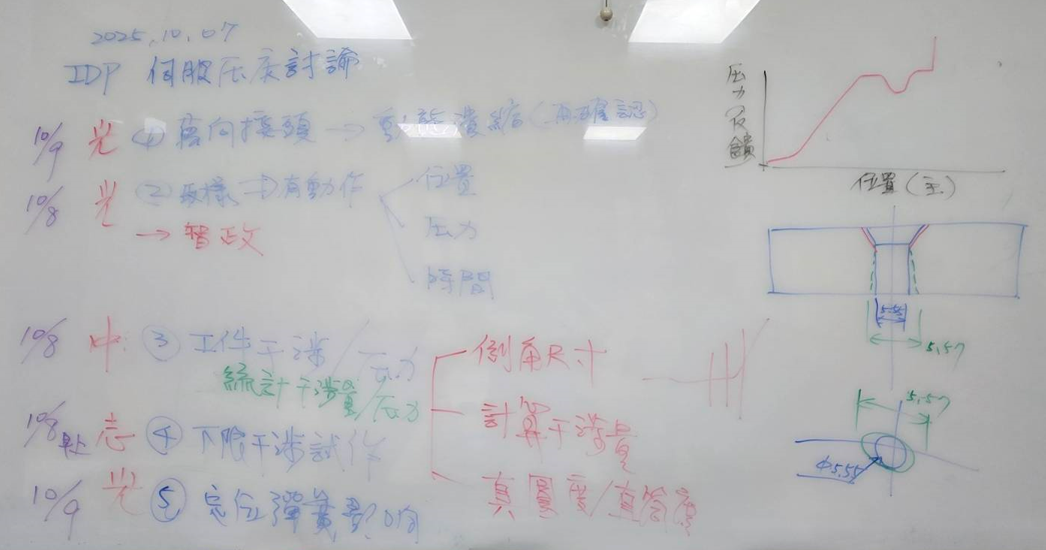 2025.10.07
IDP 伺服压床討論
10/9 光 (1) 萬向接頭 → 重新潰縮(再確認)
10/8 光 (2) 設樣 → 有動作
位置
压力
時間
→ 智政
10/8 中 ③ 工件干涉/压力
統計干涉量/压力
倒角尺寸
計算干涉量
真圓度/直
10/8 早上 志 ④ 下限干涉試作
10/9 光 ⑤ 定位彈簧影响
压力反饋
位置(主)
5.57
5.57
φ5.55